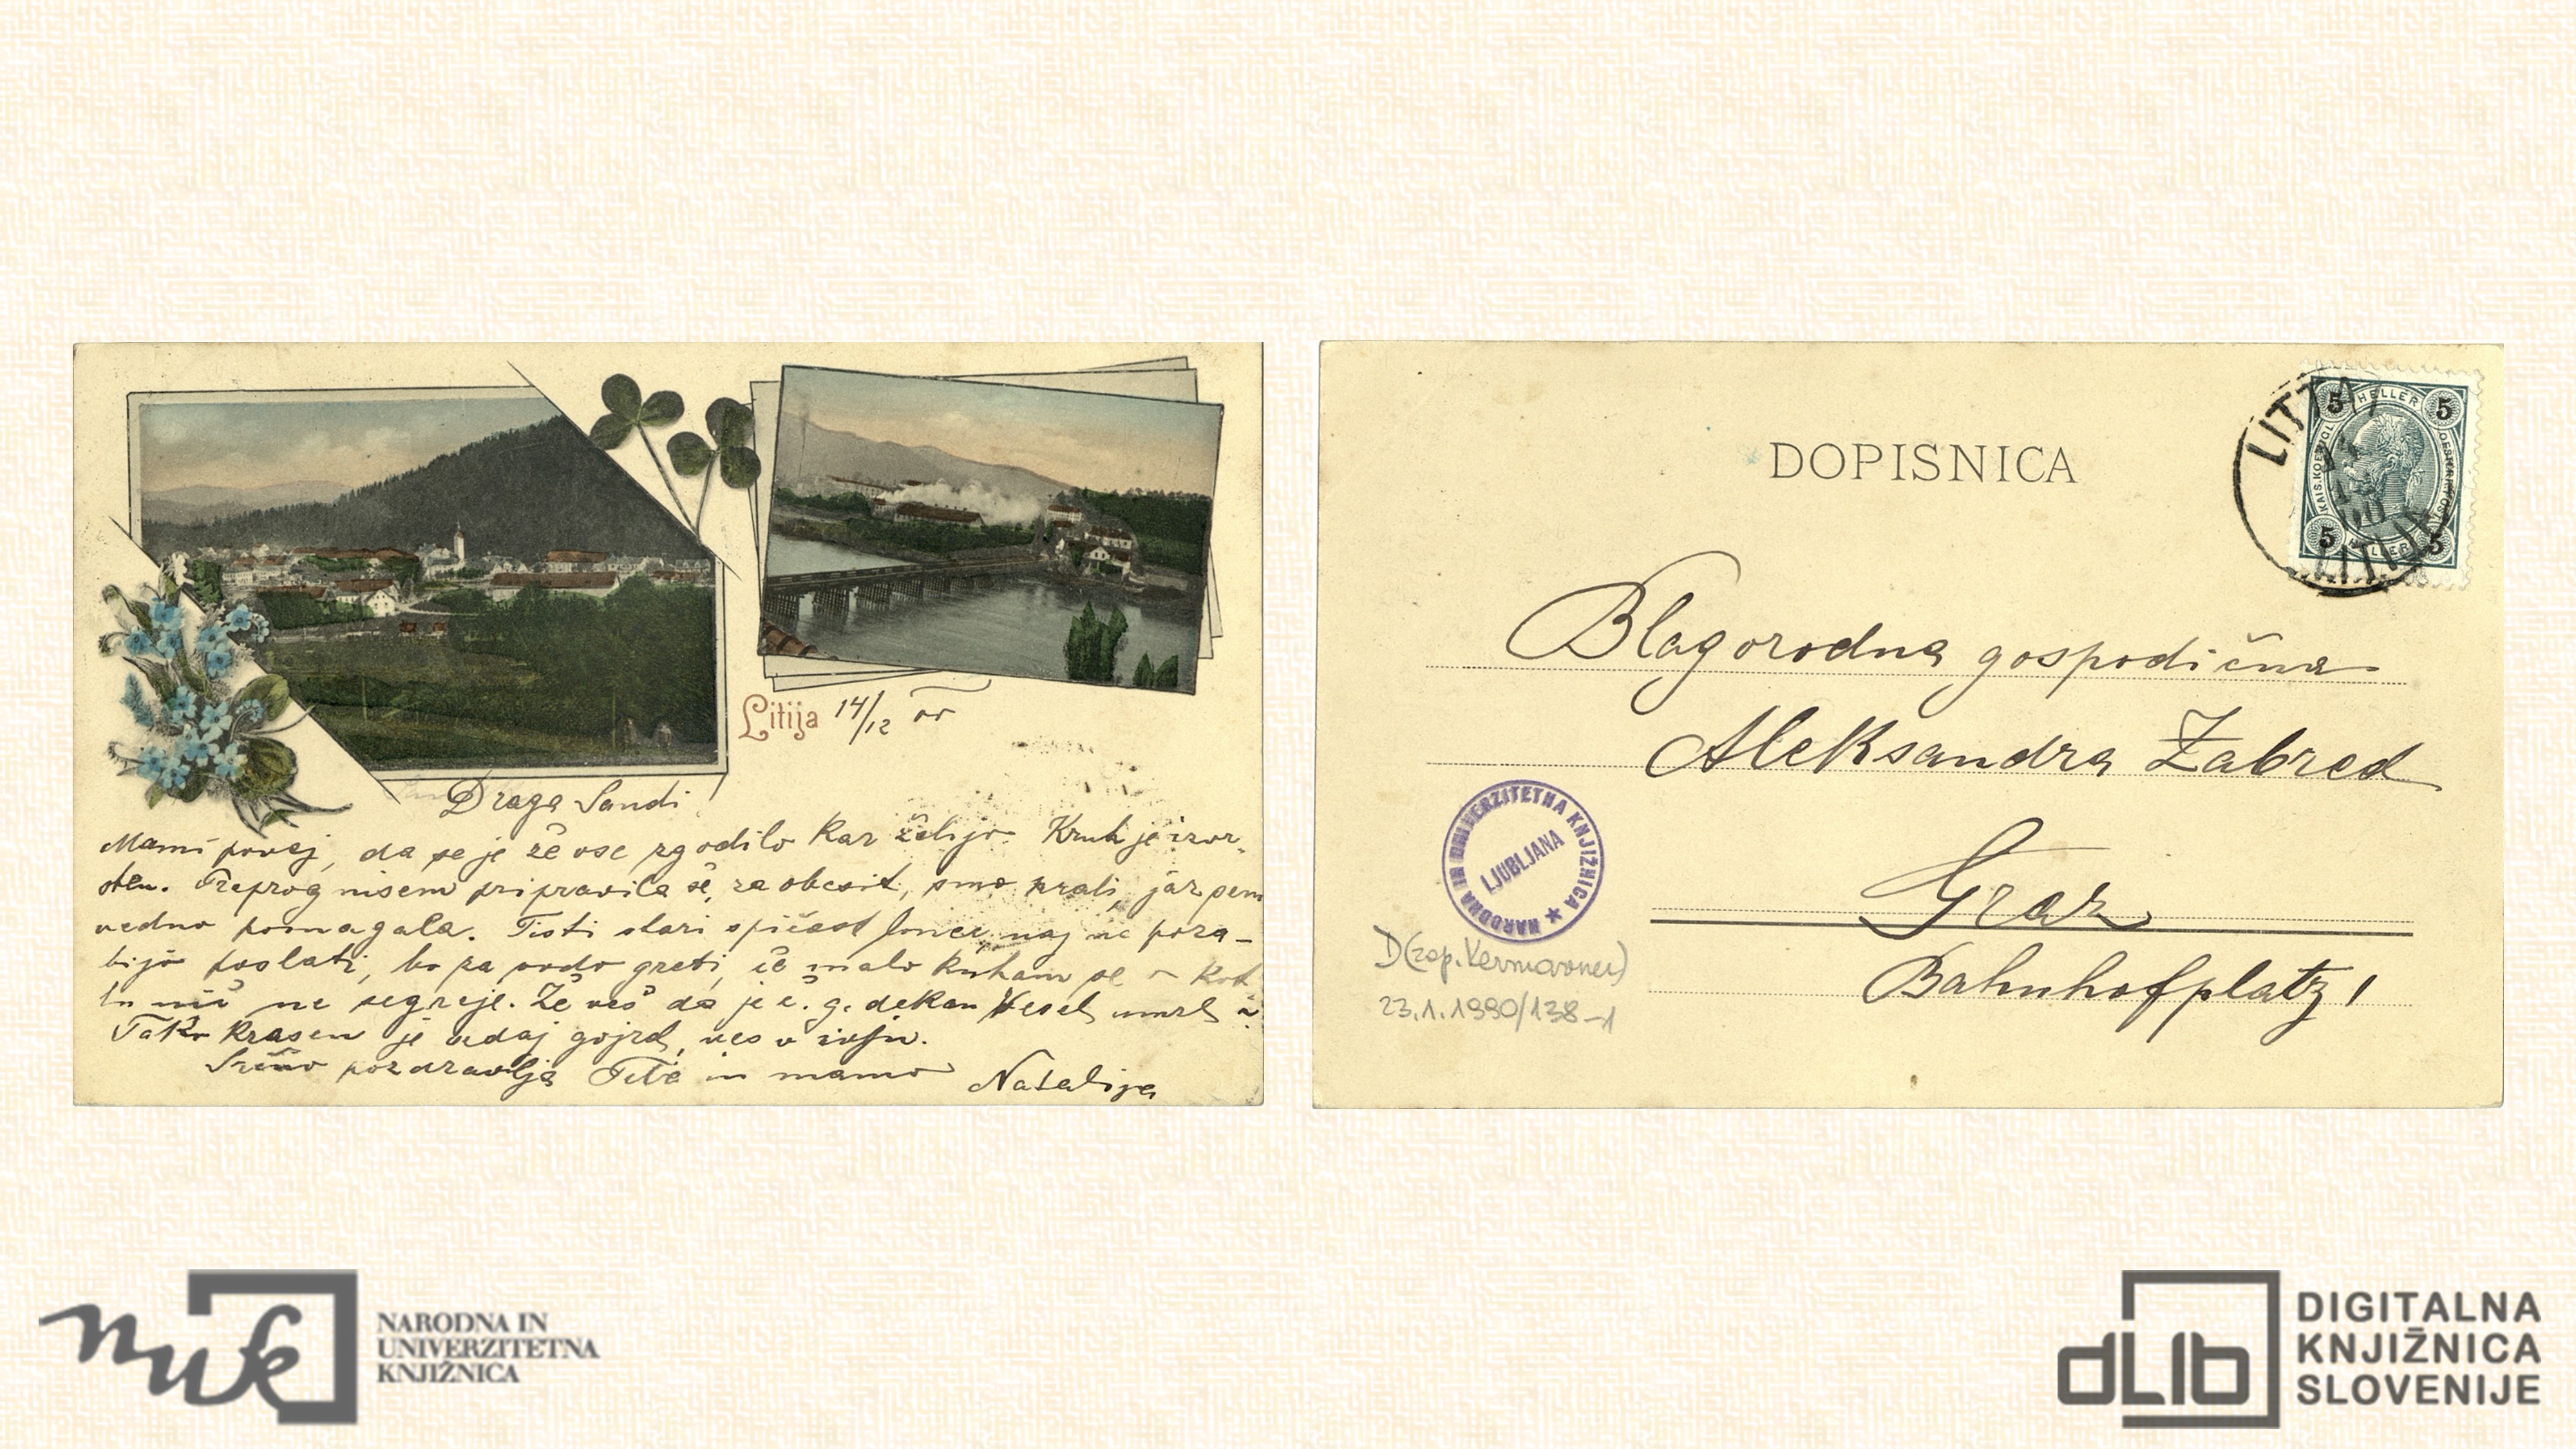 Litija 14/12 00
Draga Sandi
Mami povej, da se je že vse zgodilo kar želijo. Kruh je izvr-
sten. Preprog nisem pripravila še, za obesit, smo prali, jaz sem
vedno pomagala. Tisti stari špičast lonec naj ne poza-
bijo poslati, ko za vodo greti, če malo kuham se v kot
lu nič ne segreje. Že veš da je č. g. dekan Vesel umrl
Tako krasen je zdaj gojzd, ves v ivju.
Srčno pozdravlja Tebe in mamo Natalija
DOPISNICA
LITTAI
LITIJA
5 HELLER 5
5 HELLER 5
Blagorodna gospodična
Aleksandra Zabred
Graz
Bahnhofplatz 1
NARODNA IN UNIVERZITETNA KNJIŽNICA ★
LJUBLJANA
D(zap. Kermavner)
23.1.1990/138-1
nuk
NARODNA IN
UNIVERZITETNA
KNJIŽNICA
dLIb
DIGITALNA
KNJIŽNICA
SLOVENIJE